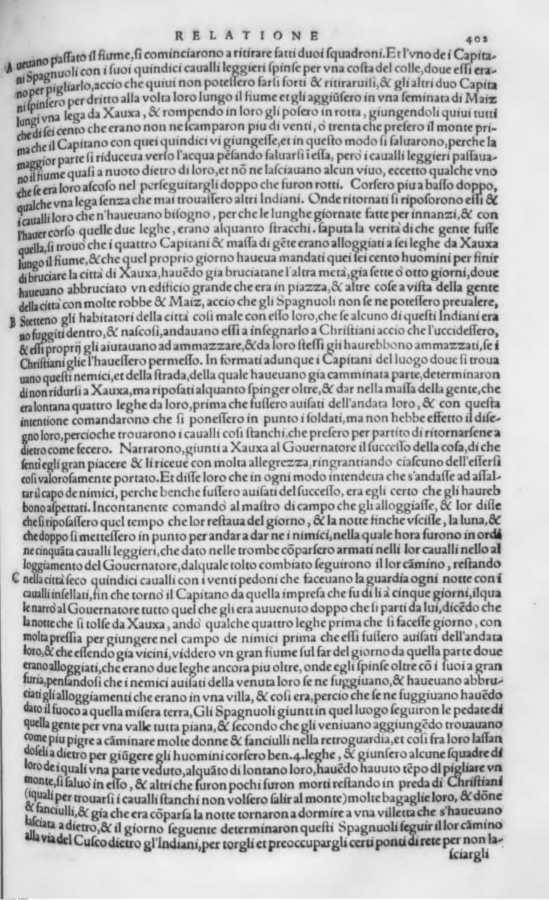 RELATIONE 402
A ueuano passato il fiume, si cominciarono a ritirare fatti duoi squadroni. Et l'vno de i Capita-
ni Spagnuoli con i suoi quindici caualli leggieri spinse per vna costa del colle, doue essi era-
no per pigliarlo, accio che quiui non potessero farsi forti & ritiraruisi, & gli altri duo Capita
ni spinsero per dritto alla volta loro lungo il fiume et gli aggiũsero in vna seminata di Maiz
lungi vna lega da Xauxa, & rompendo in loro gli posero in rotta, giungendoli quiui tutti
che di sei cento che erano non ne scamparon piu di venti, ò trenta che presero il monte pri-
ma che il Capitano con quei quindici vi giungesse, et in questo modo si saluarono, perche la
maggior parte si riduceua verso l'acqua pẽsando saluarsi ĩ essa, però i caualli leggieri passaua-
no il fiume quasi a nuoto dietro di loro, et nõ ne lasciauano alcun viuo, eccetto qualche vno
che se era loro ascoso nel perseguitargli doppo che furon rotti. Corsero piu a basso doppo,
qualche vna lega senza che mai trouassero altri Indiani. Onde ritornati si riposorono essi &
i caualli loro che n'haueuano bisogno, per che le lunghe giornate fatte per innanzi, & con
l'hauer corso quelle due leghe, erano alquanto stracchi. saputa la verità di che gente fusse
quella, si trouò che i quattro Capitani & massa di gẽte erano alloggiati a sei leghe da Xauxa
lungo il fiume, & che quel proprio giorno haueua mandati quei sei cento huomini per finir
di bruciare la città di Xauxa, hauẽdo gia bruciatane l'altra metà, gia sette ò otto giorni, doue
haueuano abbruciato vn edificio grande che era in piazza, & altre cose a vista della gente
della città con molte robbe & Maiz, accio che gli Spagnuoli non se ne potessero preualere,
B Stetteno gli habitatori della città così male con esso loro, che se alcuno di questi Indiani era
no fuggiti dentro, & nascosi, andauano essi a insegnarlo a Christiani accio che l'uccidessero,
& essi proprij gli aiutauano ad ammazzare, & da loro stessi gli haurebbono ammazzati, se i
Christiani glie l'hauessero permesso. In formati adunque i Capitani del luogo doue si troua
uano questi nemici, et della strada, della quale haueuano gia camminata parte, determinaron
di non ridursi a Xauxa, ma riposati alquanto spinger oltre, & dar nella massa della gente, che
era lontana quattro leghe da loro, prima che fussero auisati dell'andata loro, & con questa
intentione comandarono che si ponessero in punto i soldati, ma non hebbe effetto il dise-
gno loro, percioche trouarono i caualli così stanchi, che presero per partito di ritornarsene a
dietro come fecero. Narrarono, giunti a Xauxa al Gouernatore il successo della cosa, di che
sentì egli gran piacere & li riceuè con molta allegrezza, ringrantiando ciascuno dell'essersi
così valorosamente portato. Et disse loro che in ogni modo intendeua che s'andasse ad assal-
tar il capo de nimici, perche benche fussero auisati del successo, era egli certo che gli haureb
bono aspettati. Incontanente comandò al mastro di campo che gli alloggiasse, & lor disse
che si riposassero quel tempo che lor restaua del giorno, & la notte finche vscisse, la luna, &
che doppo si mettessero in punto per andar a dar ne i nimici, nella quale hora furono in ordi
ne cinquãta caualli leggieri, che dato nelle trombe cõparsero armati nelli lor caualli nello al
loggiamento del Gouernatore, dalquale tolto combiato seguirono il lor cãmino, restando
C nella città seco quindici caualli con i venti pedoni che faceuano la guardia ogni notte con i
caualli insellati, fin che tornò il Capitano da quella impresa che fu di lì à cinque giorni, ilqua
le narrò al Gouernatore tutto quel che gli era auuenuto doppo che si partì da lui, dicẽdo che
la notte che si tolse da Xauxa, andò qualche quattro leghe prima che si facesse giorno, con
molta pressia per giungere nel campo de nimici prima che essi fussero auisati dell'andata
loro, & che essendo gia vicini, viddero vn gran fiume sul far del giorno da quella parte doue
erano alloggiati, che erano due leghe ancora piu oltre, onde egli spinse oltre cõ i suoi a gran
furia, pensandosi che i nemici auisati della venuta loro se ne fuggiuano, & haueuano abbru-
ciati gli alloggiamenti che erano in vna villa, & così era, percio che se ne fuggiuano hauẽdo
dato il fuoco a quella misera terra, Gli Spagnuoli giunti in quel luogo seguiron le pedate di
quella gente per vna valle tutta piana, & secondo che gli veniuano aggiungẽdo trouauano
come piu pigre a cãminare molte donne & fanciulli nella retroguardia, et così fra loro lassan
doseli a dietro per giũgere gli huomini corsero ben. 4. leghe, & giunsero alcune squadre di
loro de i quali vna parte veduto, alquãto di lontano loro, hauẽdo hauuto tẽpo di pigliare vn
monte, si saluò in esso, & altri che furon pochi furon morti restando in preda di Christiani
(iquali per trouarsi i caualli stanchi non volsero salir al monte) molte bagaglie loro, & dõne
& fanciulli, & gia che era cõparsa la notte tornaron a dormire a vna villetta che s'haueuano
lasciata a dietro, & il giorno seguente determinaron questi Spagnuoli seguir il lor cãmino
alla via del Cusco dietro gl'Indiani, per torgli et preoccupargli certi ponti di rete per non la-
sciargli